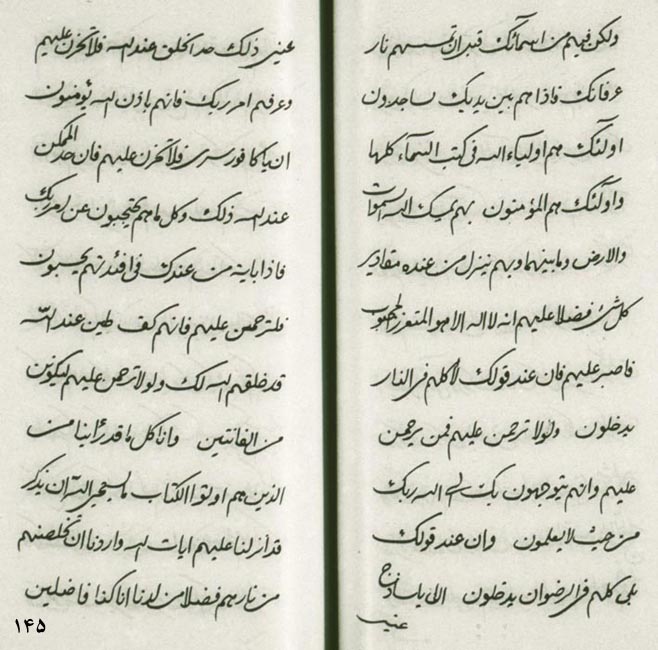 ولكن فيهم من اسمائك قبل ان تمسهم نار
عرفانك فاذا هم بين يديك ساجدون
اولئك هم اولياء الله فى كتب السماء كلها
واولئك هم المؤمنون بهم يمسك الله السموات
والارض وما بينهما وبهم ينزل من عنده مقادير
كل شئ فضلا عليهم انه لا اله الا هو المتعزز المحبوب
فاصبر عليهم فان عند قولك لا كلهم فى النار
يدخلون ولولا ترحمن عليهم فمن يرحمن
عليهم وانهم يتوجهون بك الى الله ربك
من حيث لا يعلمون وان عند قولك
بلى كلهم فى الرضوان يدخلون الى يا ساذج
عينى ذلك حد الخلق عند الله فلا تحزن عليهم
وعرفهم امر ربك فانهم باذن الله يؤمنون
ان يا كافور سرى فلا تحزن عليهم فان حد الممكن
عند الله ذلك وكل ما هم يحتجبون عن امر ربك
فاذا باية من عندك فى افئدتهم يحسبون
فلترحمن عليهم فانهم كف طين عند الله
قد خلقهم الله لك ولولا ترحمن عليهم ليكونن
من الفانتين وانا كل ما قدرأينا من
الذين هم اوتوا الكتاب ما يستحيى الله ان يذكر
قد انزلنا عليهم ايات الله واردنا ان نخلصنهم
من نارهم فضلا من لدنا انا كنا فاضلين
۱۴۵